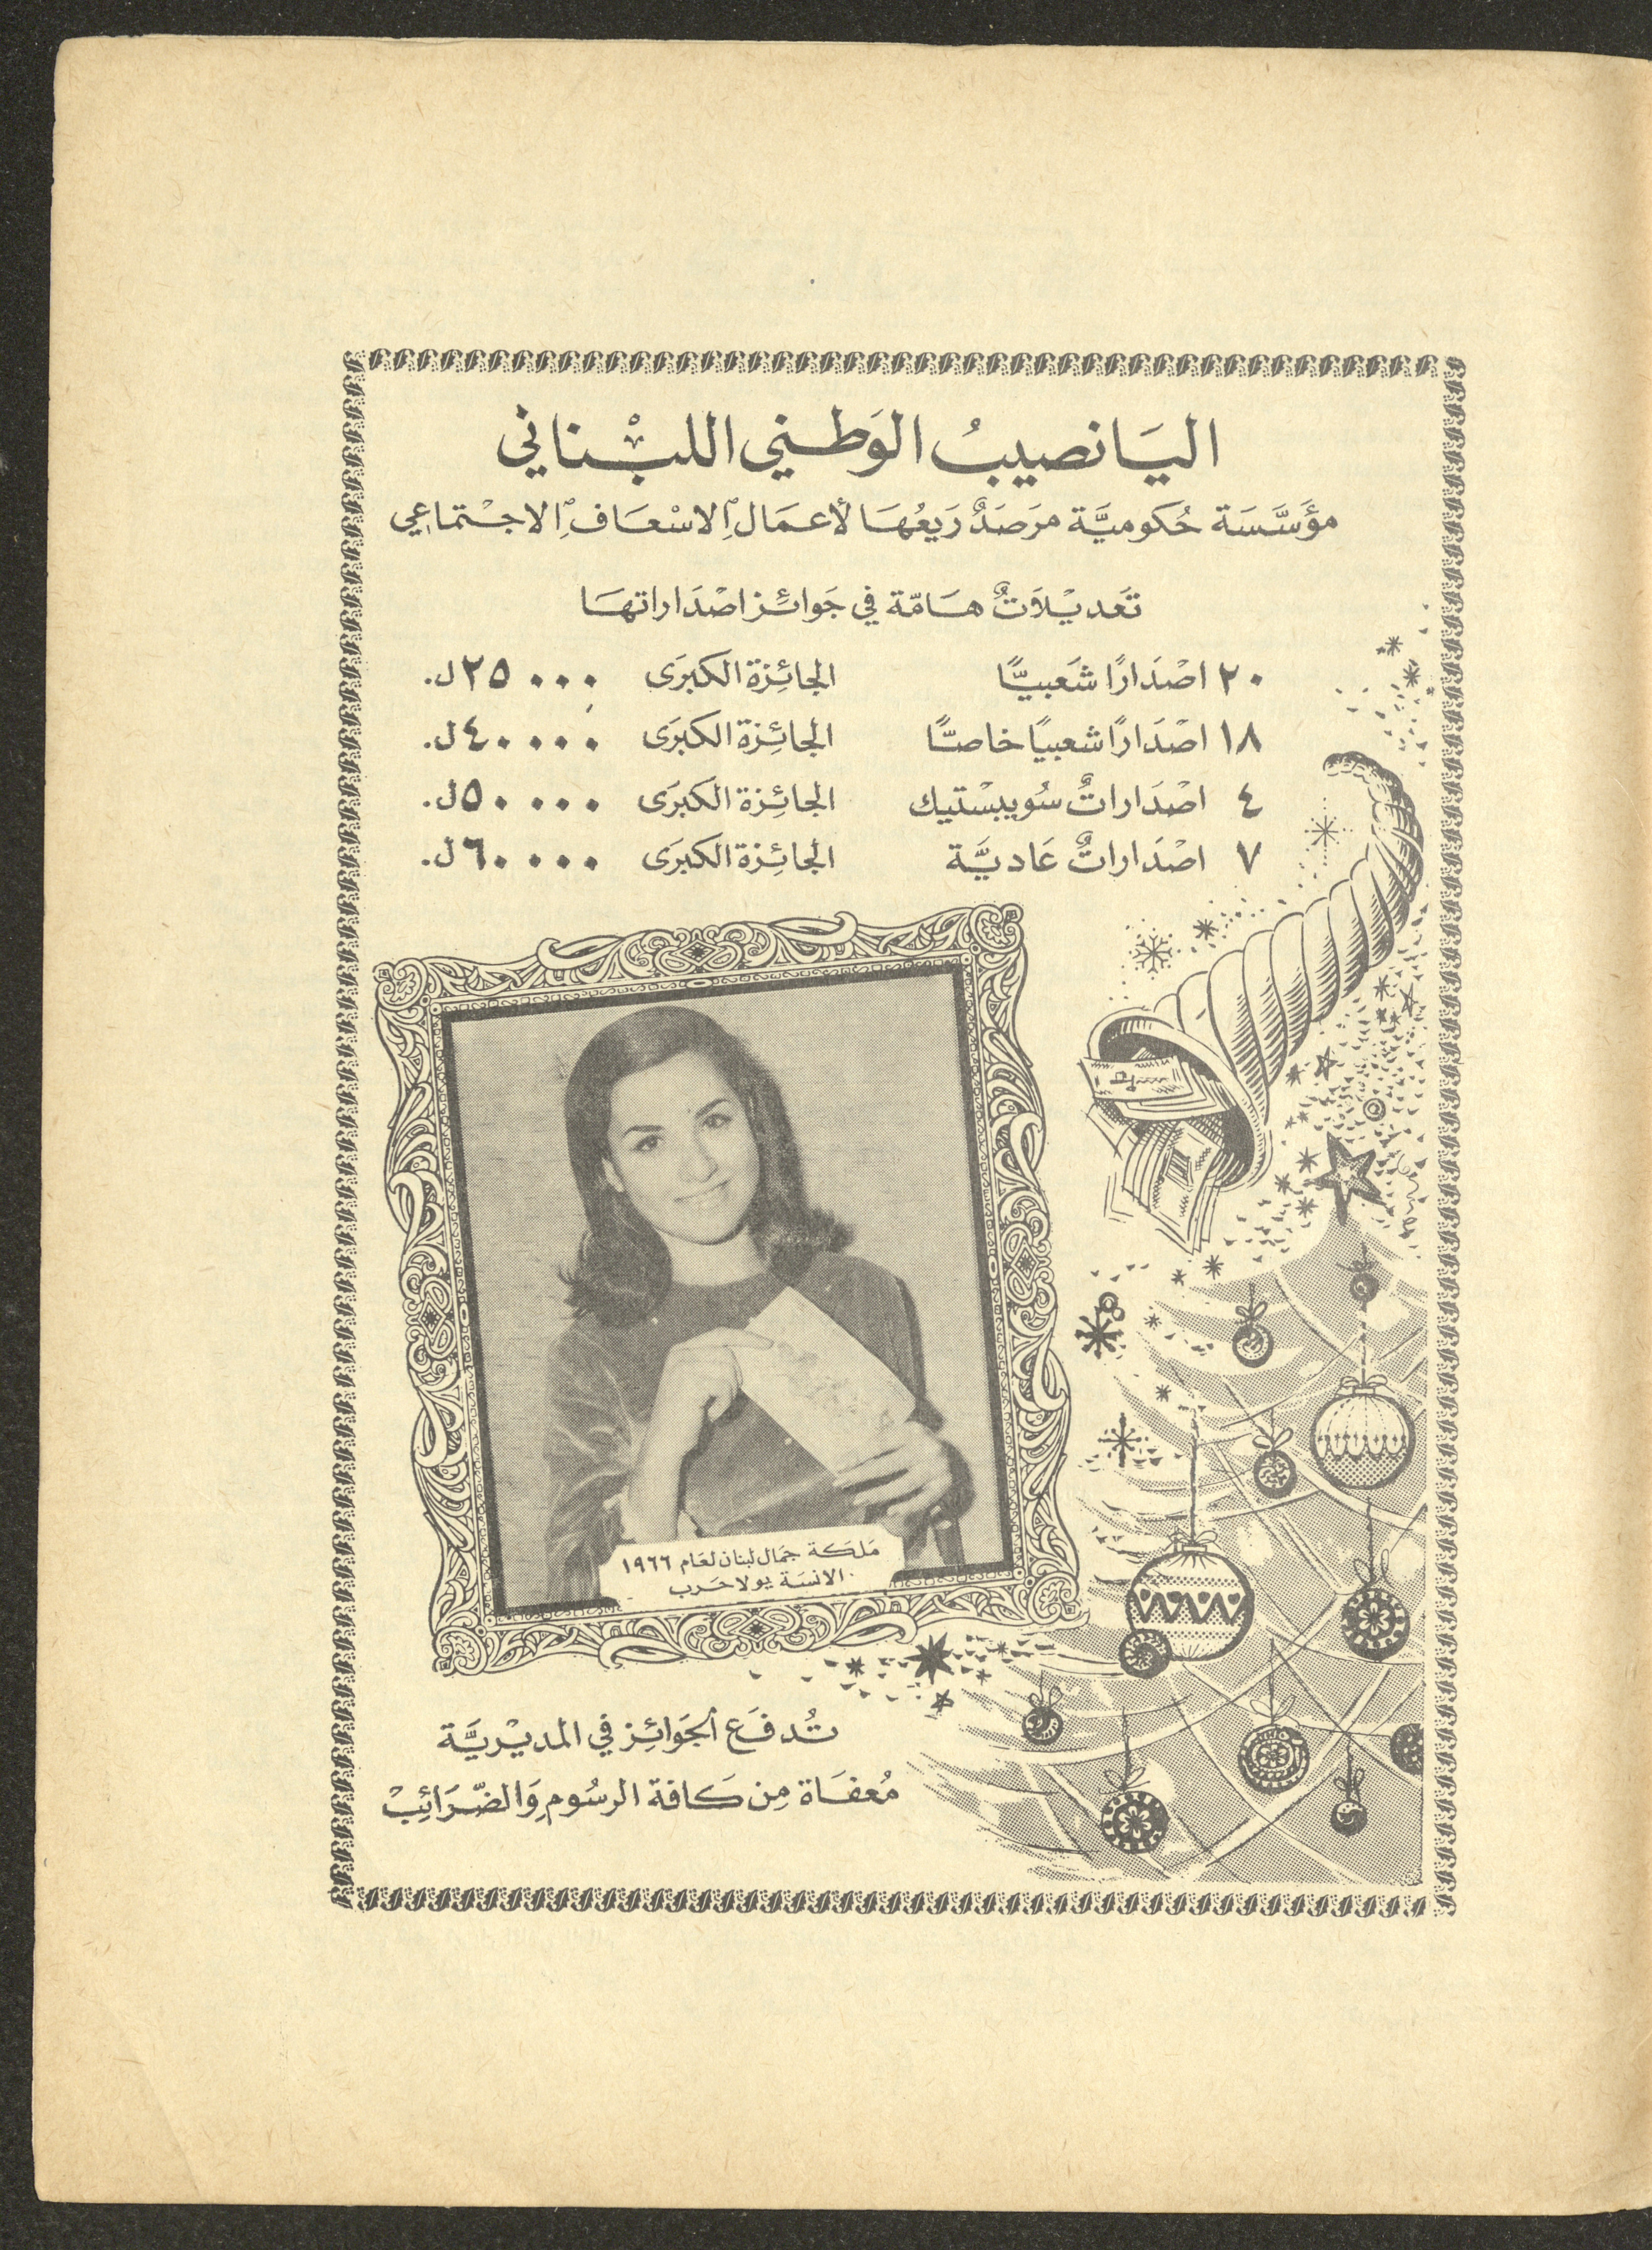 اليَانصيبُ الوَطني اللبْناني
مؤَسَّسَة حُكوميَّة مرَصَدٌ رَيعُهَا لأعمَالِ الاسْعَافِ الاجْتماعي
تَعديْلاَتٌ هَامّة في جَوائِز اصْدَاراتهَا
٢٠ اصْدَارًا شَعبيًّا الجائِزة الكبرَى ٢٥٠٠٠ ل.
١٨ اصْدَارًا شعبيًا خاصًّا الجائِزة الكبرَى ٤٠٠٠٠ ل.
٤ اصْدَاراتٌ سُويبسْتيك الجائِزة الكبرَى ٥٠٠٠٠ ل.
٧ اصْدَاراتٌ عَاديَّة الجائِزة الكبرَى ٦٠٠٠٠ ل.
مَلكَة جمَال لبنان لعَام ١٩٦٦
الانسَة يولا حَرب
تُدفَع الجَوائِز في المديْريَّة
مُعفَاة مِن كَافة الرسُومِ وَالضّرَائِبْ